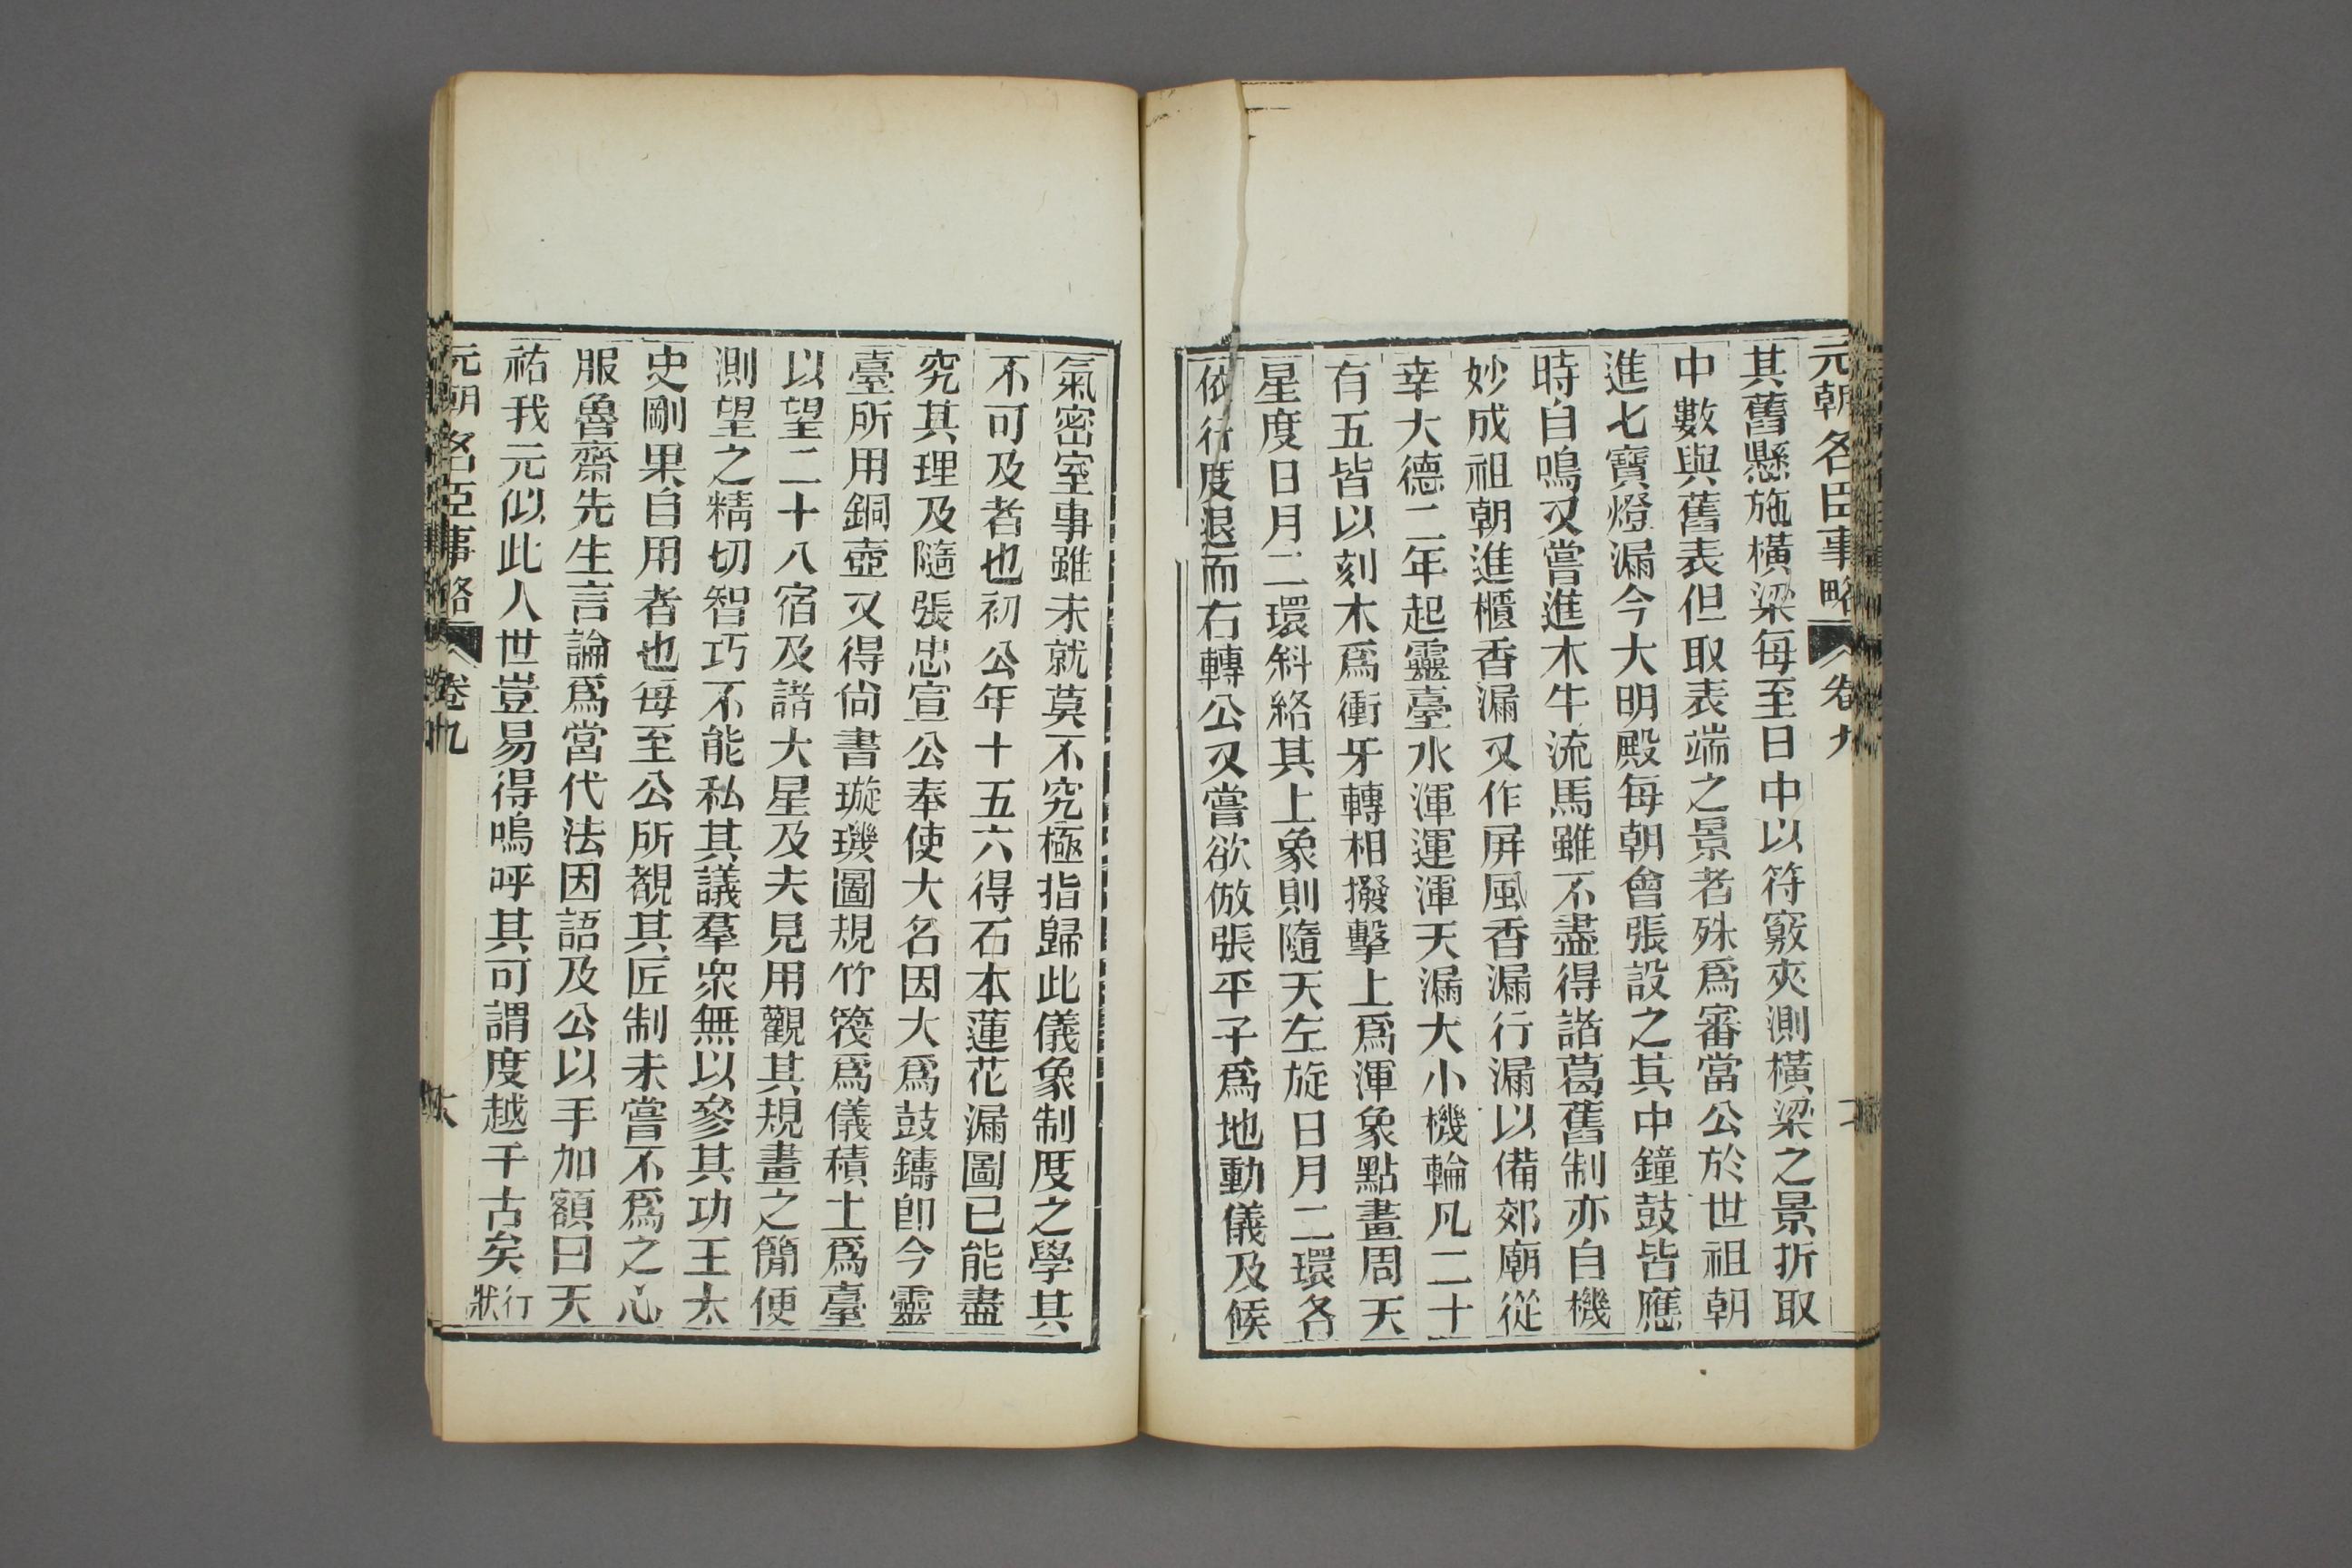 元朝名臣事略 卷九
其舊懸施橫梁每至日中以符竅夾測橫梁之景折取
中數與舊表但取表端之景者殊爲審當公於世祖朝
進七寶燈漏今大明殿每朝會張設之其中鐘鼓皆應
時自鳴又嘗進木牛流馬雖不盡得諸葛舊制亦自機
妙成祖朝進櫃香漏又作屏風香漏行漏以備郊廟從
幸大德二年起靈臺水渾運渾天漏大小機輪凡二十
有五皆以刻木爲衝牙轉相撥擊上爲渾象點畫周天
星度日月二環斜絡其上象則隨天左旋日月二環各
依行度退而右轉公又嘗欲倣張平子爲地動儀及候
氣密室事雖未就莫不究極指歸此儀象制度之學其
不可及者也初公年十五六得石本蓮花漏圖已能盡
究其理及隨張忠宣公奉使大名因大爲鼓鑄卽今靈
臺所用銅壺又得尙書璇璣圖規竹篾爲儀積土爲臺
以望二十八宿及諸大星及夫見用觀其規畫之簡便
測望之精切智巧不能私其議羣衆無以參其功王太
史剛果自用者也每至公所覩其匠制未嘗不爲之心
服魯齋先生言論爲當代法因語及公以手加額曰天
祐我元似此人世豈易得嗚呼其可謂度越千古矣行狀
元朝名臣事略 卷九